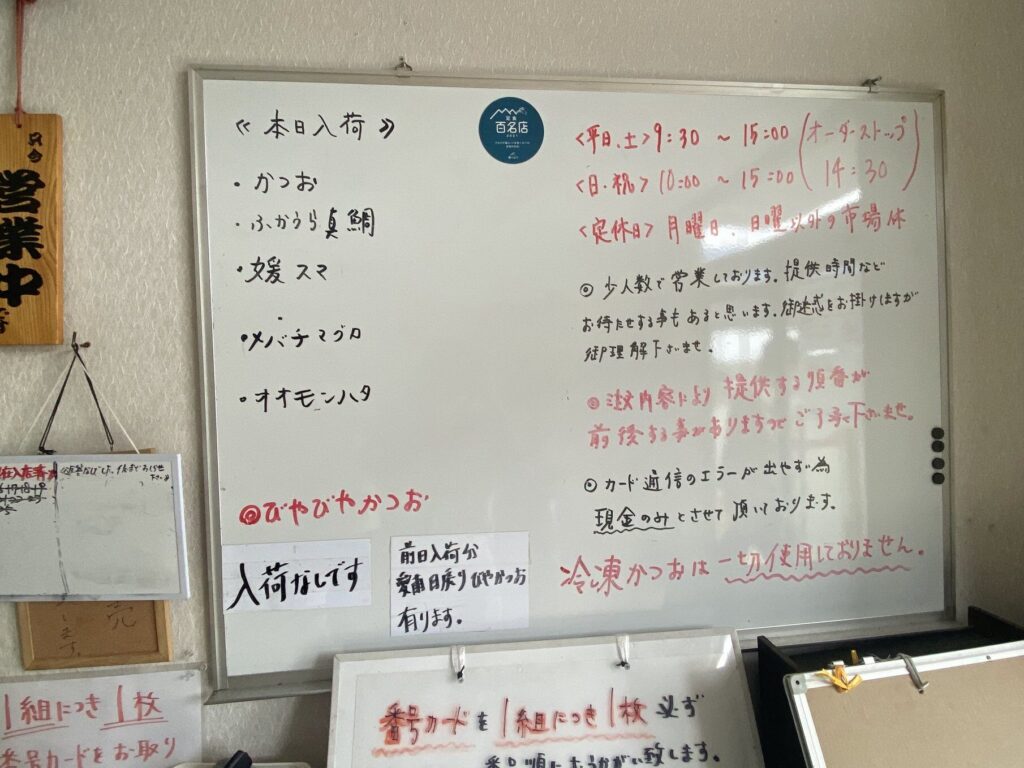 営業中
《本日入荷》
・かつお
・ふかうら真鯛
・媛スマ
・メバチマグロ
・オオモンハタ
◎びやびやかつお
入荷なしです
前日入荷分
愛南日戻りびやかつお
有ります。
百名店
<平日、土>9:30 ～ 15:00 (オーダーストップ
<日・祝> 10:00 ～ 15:00 14:30)
<定休日> 月曜日、日曜以外の市場休
◎ 少人数で営業しております。提供時間など
お待たせする事もあると思います。御迷惑をお掛けしますが
御理解下さいませ。
◎注文内容により提供する順番が
前後する事がありますのでご了承下さいませ。
◎ カード通信のエラーが出やすい為
現金のみとさせて頂いております。
冷凍かつおは一切使用しておりません。
1組につき1枚
番号カードをお取り
番号カードを1組につき1枚 必ず
番号順におうかがい致します。